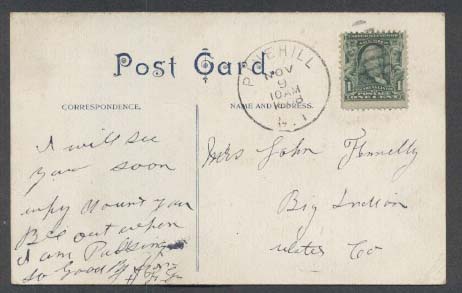 Post Card.
CORRESPONDENCE.
NAME AND ADDRESS.
PINEHILL
NOV
9
10AM
1908
1 1
ONE CENT
I will see
you soon
why Dount you
Be out when
I am Passing
so Good By
Mrs John
Big Indian
Ulster Co